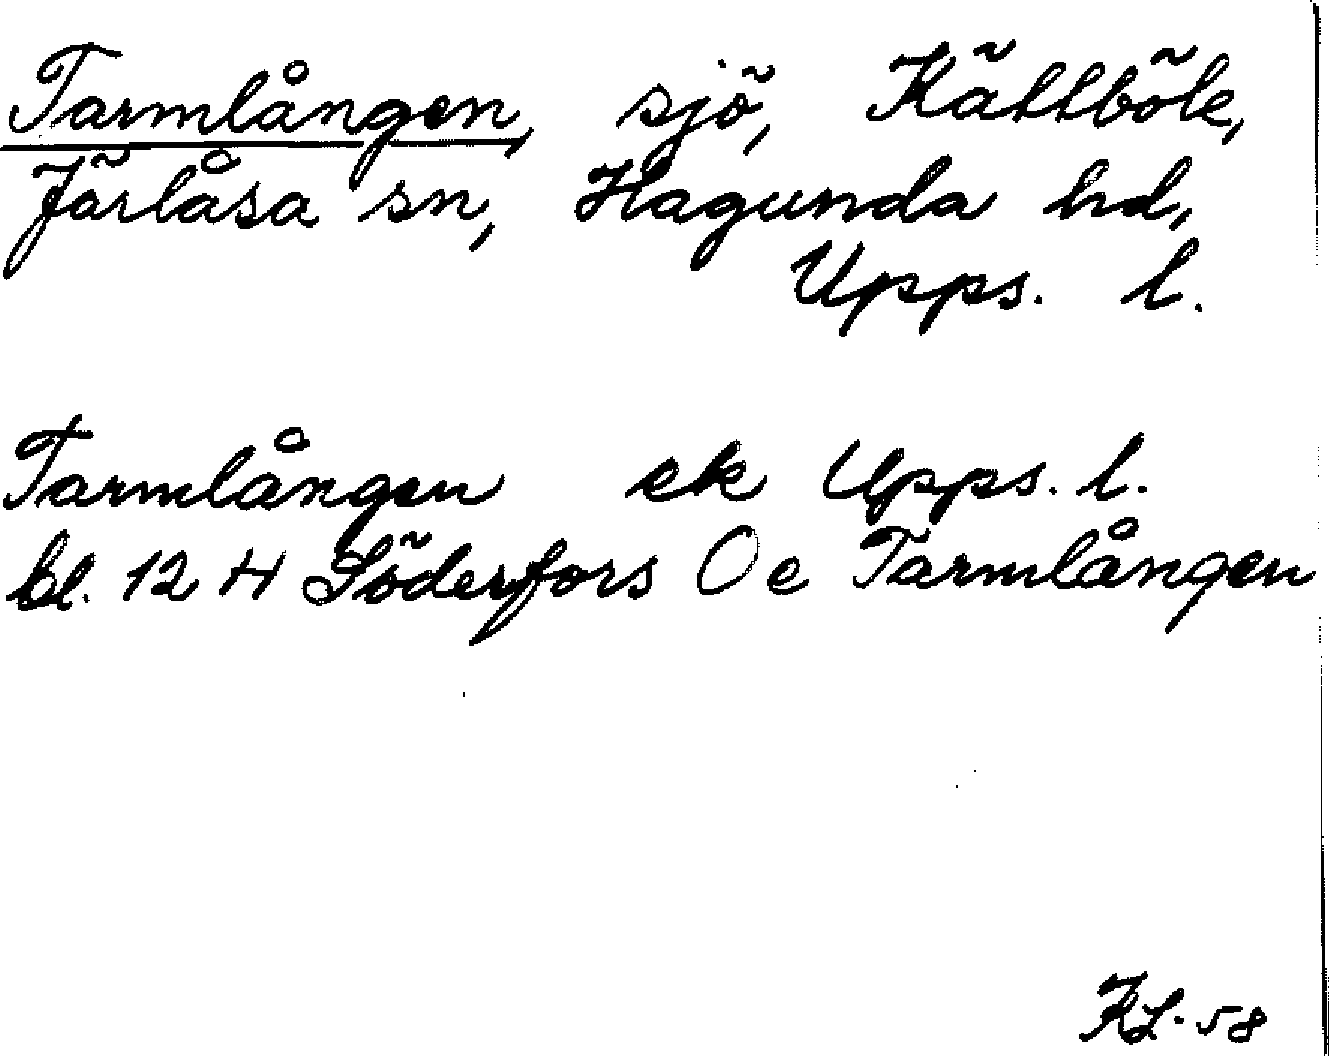 Tarmlången, sjö, Källböle,
Järlåsa sn, Hagunda hd,
Upps. l.
Tarmlången ek Upps. l.
bl. 12 H Söderfors Oe Tarmlången
KL. 58